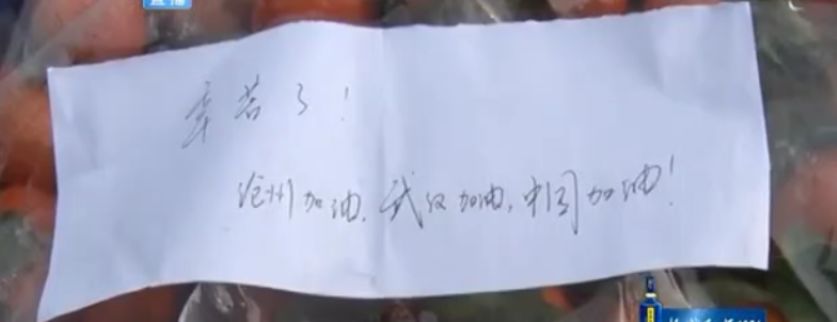 直播
辛苦了!
沧州加油,武汉加油,中国加油!